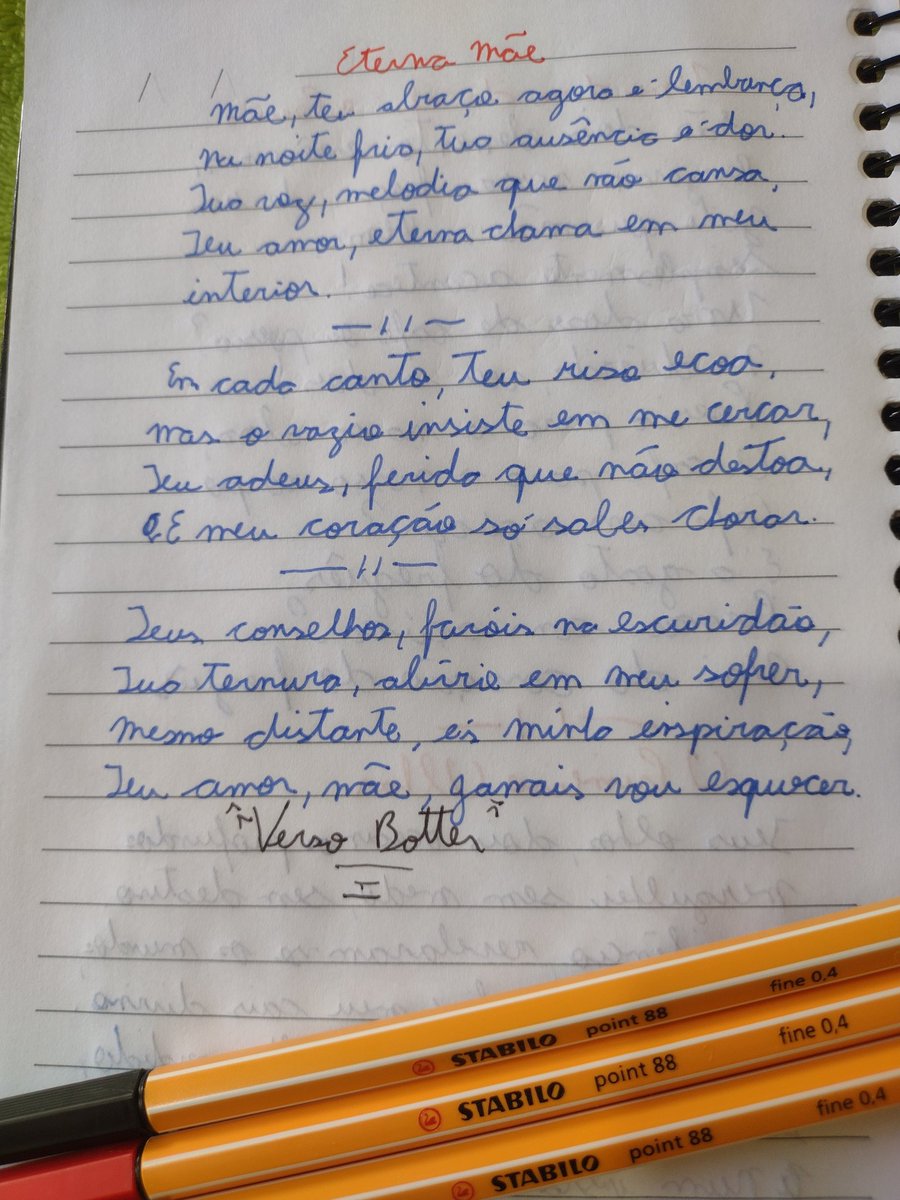 Eterna Mãe
Mãe, teu abraço agora é lembrança,
na noite fria, tua ausência é dor.
Tua voz, melodia que não cansa,
Teu amor, eterna chama em meu
interior.
Em cada canto, teu riso ecoa,
mas o vazio insiste em me cercar,
Teu adeus, ferida que não destoa,
E meu coração só sabes chorar.
Teus conselhos, faróis na escuridão,
Tua ternura, alívio em meu sofrer,
mesmo distante, és minha inspiração,
Teu amor, mãe, jamais vou esquecer.
"Verso Botter"
I
STABILO point 88 fine 0,4
STABILO point 88 fine 0,4
STABILO point 88 fine 0,4